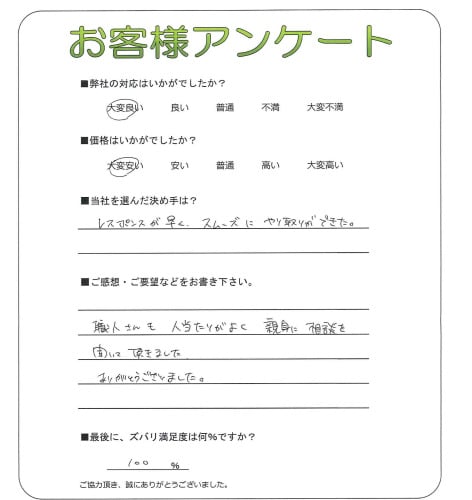 お客様アンケート
■弊社の対応はいかがでしたか？
大変良い 良い 普通 不満 大変不満
■価格はいかがでしたか？
大変安い 安い 普通 高い 大変高い
■当社を選んだ決め手は？
レスポンスが早く、スムーズにやり取りができた。
■ご感想・ご要望などをお書き下さい。
職人さんも 人当たりがよく 親身に 相談を
聞いて頂きました
ありがとうございました。
■最後に、ズバリ満足度は何%ですか？
100 %
ご協力頂き、誠にありがとうございました。